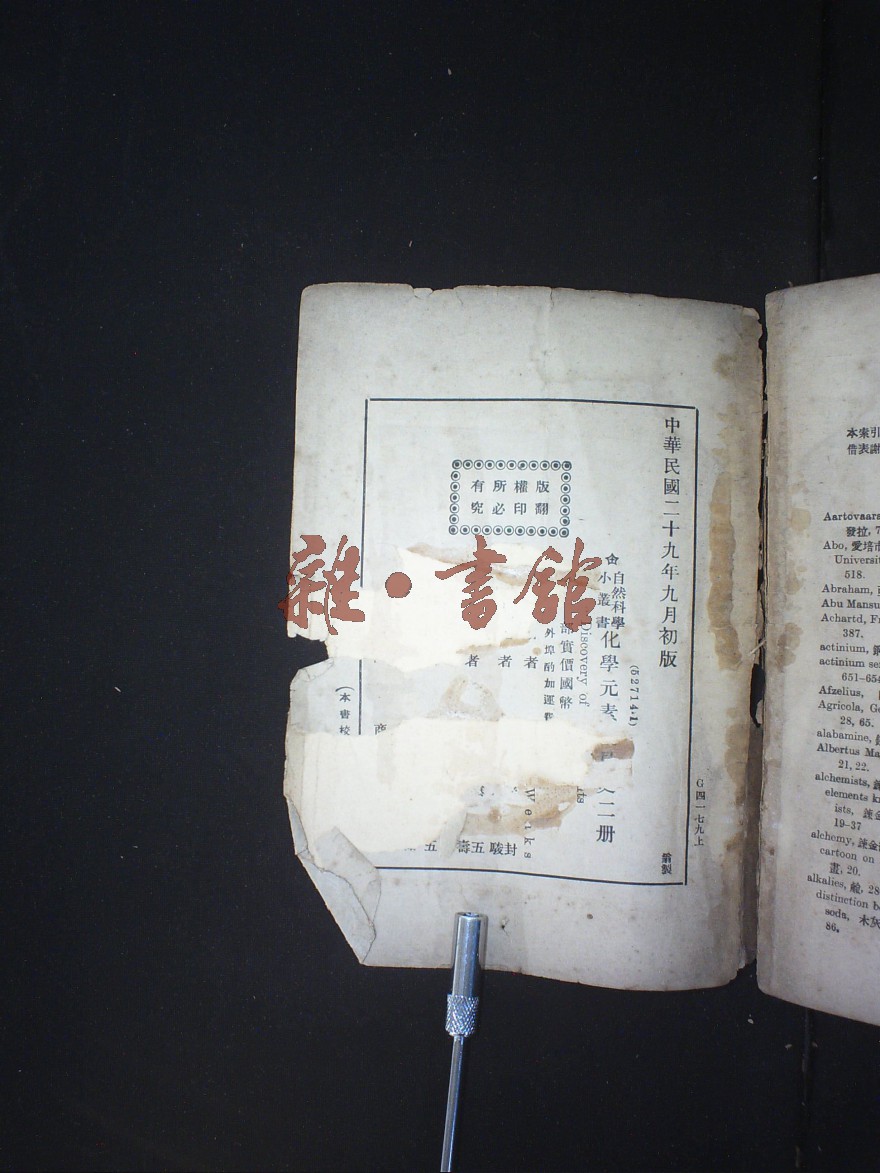 中華民國二十九年九月初版
版權所有
翻印必究
(52714·1)
自然科學
小叢書
化學元素
二册
Discovery of
Weeks
部實價國幣
外埠酌加運
者
者
者
封駿五壽五
(本書校
商
G四一七九上
本索引
借表謝
Aartovaara
發拉, 7
Abo, 愛培市
Universit
518.
Abraham,
Abu Mansu
Achartd, Fr
387.
actinium,
actinium se
651-654
Afzelius,
Agricola, Ge
28, 65.
alabamine,
Albertus Ma
21, 22.
alchemists,
elements k
ists,
19-37
alchemy, 鍊金
cartoon on
畫, 20.
alkalies, 鹼, 28
distinction b
soda,
86.
雜·書館